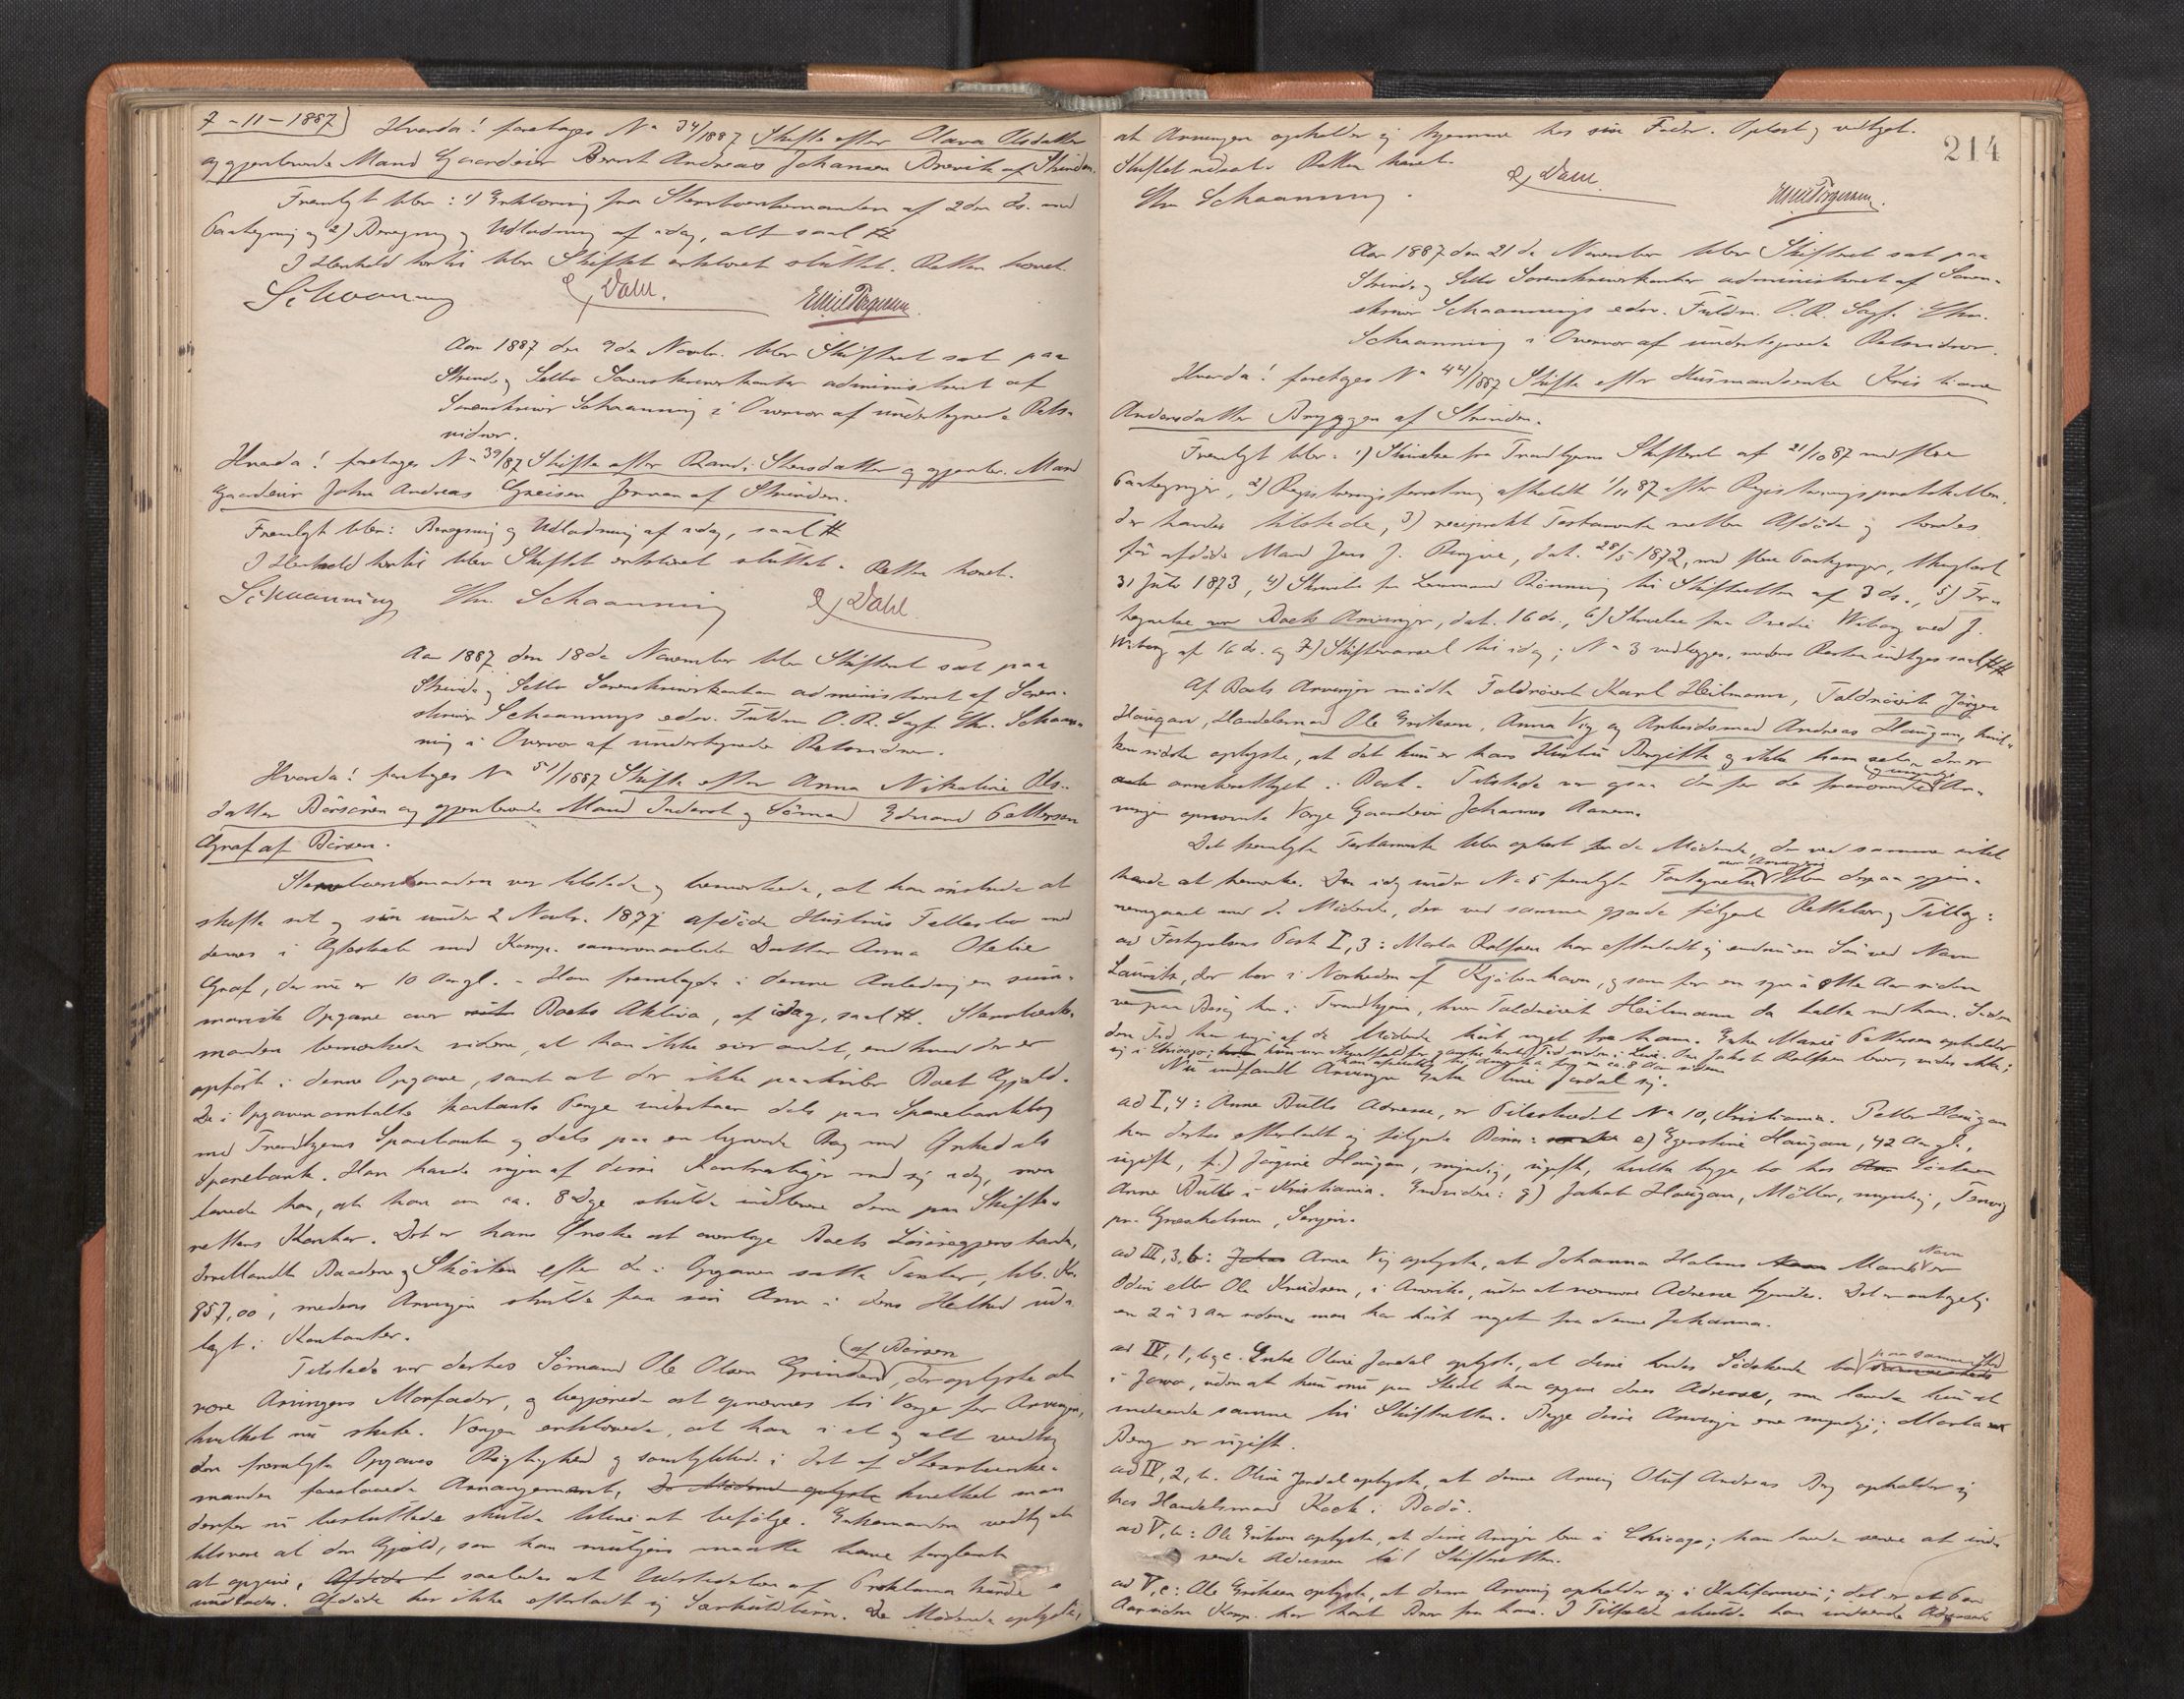 7-11-1887) Hvorda! foretoges No 34/1887 Skifte efter Olava Olsdatter
og gjenlevende Mand Gaardeier Bernt Andreas Johansen Brevik af Strinden.
Fremlagt blev: 1) Erklæring fra Stervboenkemanden af 2den ds. med
Paategning og 2) Beregning og Udlodning af idag, alt saal #
I Henhold hertil blev Skiftet erklæret sluttet. Retten hævet.
Schaanning Dahl. Emil Torgersen
Aar 1887 den 9de Novbr. blev Skifteret sat paa
Strinde og Selbo Sorenskriverkontor administreret af
Sorenskriver Schaanning i Overvær af undertegnede Rets-
vidner.
Hvorda! foretoges No 39/87 Skifte efter Randi Stensdatter og gjenlev. Mand
Gaardeier John Andreas Greisen Jernan af Strinden.
Fremlagt blev: Beregning og Udlodning af idag, saal #
I Henhold hertil blev Skiftet erklæret sluttet. Retten hævet.
Schaanning Chr. Schaanning Dahl
Aar 1887 den 18de November blev Skifteret sat paa
Strinde og Selbo Sorenskriverkontor administreret af Soren-
skriver Schaannings edsv. Fuldm. O.R. Sagf. Chr. Schaan-
ning i Overvær af undertegnede Retsvidner.
Hvorda! foretoges No 51/1887 Skifte efter Anna Nikoline Ols-
datter Børsøren og gjenlevende Mand Inderst og Sømand Edvard Pettersen
Graf af Børsen.
Stervboenkemanden var tilstede og bemærkede, at han ønskede at
skifte sit og sin under 2 Novbr. 1877 afdøde Hustrus Fællesbo med
deres i Ægteskab med Komp. sammenavlede Datter Anna Otelie
Graf, der nu er 10 Aar gl. - Han fremlagde i denne Anledning en sum-
marisk Opgave over Boets Aktiva, af idag, saal #. Stervboenke-
manden bemærkede videre, at han ikke eier andet, end hvad der er
opført i denne Opgave, samt at der ikke paahviler Boet Gjæld.
De i Opgaven omtalte kontante Penge indestaar dels paa Sparebankbog
med Trondhjems Sparebank og dels paa en lignende Bog med Ørkedals
Sparebank. Han havde ingen af disse Kontrabøger med sig idag, men
lovede han, at han om ca. 8 Dge skulde indlevere dem paa Skifte-
rettens Kontor. Det er hans Ønske at overtage Boets Løsøregjenstande,
iberegnet Baadene og Skøiten efter de i Opgaven satte Taxter, tils. Kr.
857,00, medens Arvingen skulde faa sin Arv i dens Helhed ud-
lagt i Kontanter.
(af Børsen
Tilstede var derhos Sømand Ole Olsen Grinden, der oplyste at
være Arvingens Morfader, og begjærede at opnævnes til Værge for Arvingen,
hvilket nu skete. Værgen erklærede, at han i et og alt vedtog
den fremlagte Opgaves Rigtighed og samtykkede i det af Stervboenke-
manden foreslaaede Arrangement, De Mødende oplyste hvilket man
derfor nu besluttede skulde blive at befølge. Enkemanden vedtog at
tilsvare al den Gjæld, som han muligens maatte have forglemt
at opgive, Afdøde h saaledes at Udstedelse af Proklama kunde
undlades. Afdøde har ikke efterladt sig Særkuldbørn. De Mødende oplyste,
214
at Arvingen opholder sig hjemme hos sin Fader. Oplæst og vedtaget.
Skiftet udsat. Retten hævet.
Chr. Schaanning. Dahl. Emil Torgersen.
Aar 1887 den 21de November blev Skifteret sat paa
Strinde og Selbo Sorenskriverkontor administreret af Soren-
skriver Schaannings edsv. Fuldm. O.R. Sagf. Chr.
Schaanning i Overvær af undertegnede Retsvidner.
Hvorda! foretoges No 44/1887 Skifte efter Husmandsenke Kristiane
Andersdatter Bryggen af Strinden.
Fremlagt blev: 1) Skrivelse fra Trondhjems Skifteret af 21/10 87 med flere
Paategninger, 2) Registreringsforretning afholdt 1/11 87 efter Registreringsprotokollen,
der havdes tilstede, 3) reciprokt Testamente mellem Afdøde og hendes
før afdøde Mand Jens J. Ringve, dat. 28/5 1872, med flere Paategninger, thinglæst
31 Juli 1873, 4) Skrivelse fra Lensmand Rønning til Skifteretten af 3 ds., 5) For-
tegnelse over Boets Arvinger, dat. 16 ds., 6) Skrivelse fra Ovedie Wiborg ved J.
Wiborg af 16 ds. og 7) Skiftevarsel til idag; No 3 vedlægges, medens Resten indtages saal ##
Af Boets Arvinger mødte Toldrorert Karl Heilmann, Toldrorert Jørgen
Haugan, Handelsmand Ole Eriksen, Anna Vig og Arbeidsmand Andreas Haugan, hvil-
ken sidste oplyste, at det kun er hans Hustru Bergitte og ikke ham selv, der er
arveberettiget i Boet. Tilstede var ogsaa den for de fraværende og umyndige Ar-
vinger opnævnte Værge Gaardeier Johannes Aanem.
Det fremlagte Testamente blev oplæst for de Mødende, der ved samme intet
havde at bemærke. Den idag under No 5 fremlagte Fortegnelse over Arvinger blev derpaa gjen-
nemgaaet med de Mødende, der ved samme gjorde følgende Rettelser og Tillæg:
ad Fortegnelsens Post I, 3: Marta Rolfsen har efterladt sig endnu en Søn ved Navn
Lauritz, der bor i Nærheden af Kjøbenhavn, og som for en syv à otte Aar siden
var paa Besøg her i Trondhjem, hvor Toldrorert Heilmann da talte med ham. Siden
den Tid har ingen af de Mødende hørt noget fra ham. Enke Marie Pettersen opholder
sig i Chicago; hun var ihvertfald for ganske kort Tid siden i Live. Om Jakob Rolfsen lever, vides ikke;
han afreiste til Amerika for en ca. 8 Aar siden.
Nu indfandt Arvingen Enke Oline Jendal sig.
ad I, 4: Anne Bulls Adresse, er Pilestrædet No 10, Kristiania. Petter Haugan
har derhos efterladt sig følgende Børn: e) Gjerstine Haugan, 42 Aar gl.,
ugift, f.) Jørgine Haugan, myndig, ugift, hvilke begge bo hos Søsteren
Anne Bulls i Kristiania. Endvidere: g) Jakob Haugan, Møller, myndig, Tenvig
pr. Græsholmen, Senjen.
ad III, 3, b: Johan Anna Vig oplyste, at Johanna Halens Mands Navn er
Odin eller Ole Knudsen, i Amerika, uden at nærmere Adresse kjendes. Det er antagelig
en 2 à 3 Aar siden man har hørt noget fra denne Johanna.
ad IV, 1, b og c. Enke Oline Jendal oplyste, at disse hendes Sødskende bo paa samme Sted
i Jowa, uden at hun nu paa Stedet kan opgive deres Adresse, men lovede hun at
indsende samme til Skifteretten. Begge disse Arvinger ere myndige; Marta
Berg er ugift.
ad IV, 2, b. Oline Jendal oplyste, at denne Arving Oluf Andreas Berg opholder sig
hos Handelsmand Koch i Bodø.
ad V, b: Ole Eriksen oplyste, at disse Arvinger bor i Chicago; han lovede senere at ind-
sende Adressen til Skifteretten.
ad V, c: Ole Eriksen oplyste, at denne Arving opholder sig i Kalifornien; det er et Par
Aar siden Komp. har hørt Brev fra ham. I Tilfælde skulde han indsende Adressen